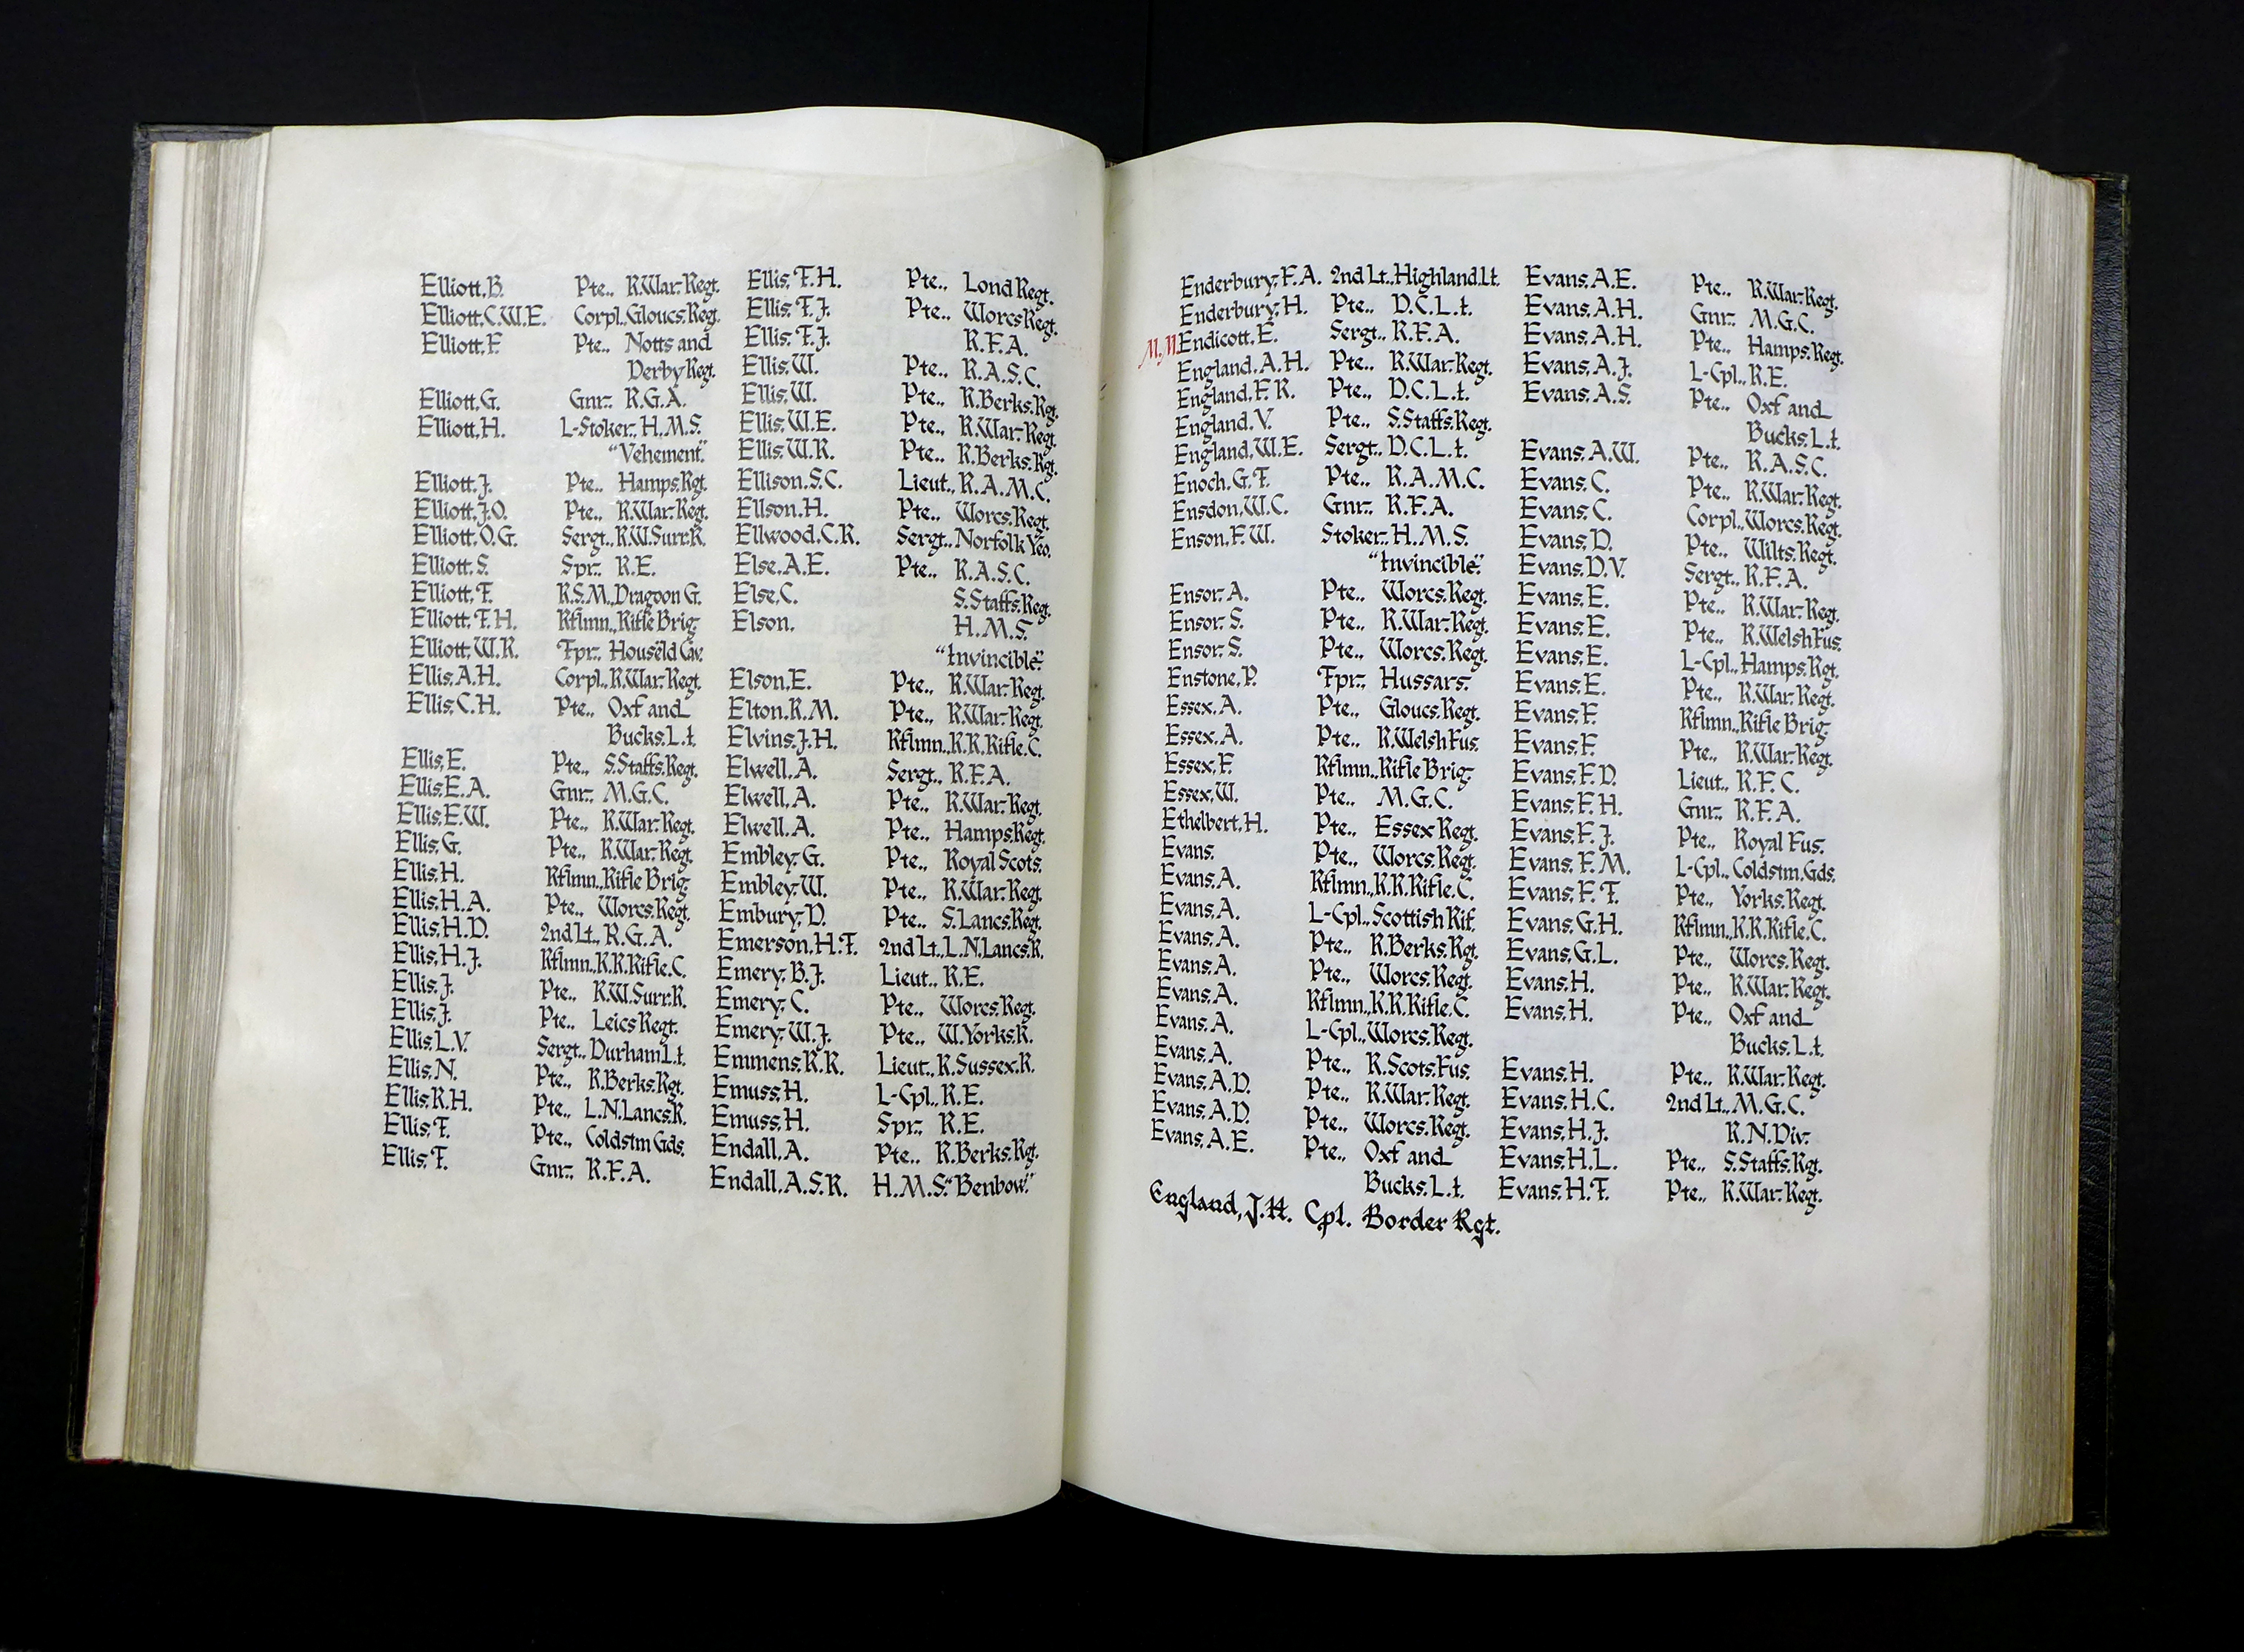 Elliott, B. Pte., R.War. Regt.
Elliott, C.W.E. Corpl., Gloucs. Regt.
Elliott, F. Pte., Notts and
Derby Regt.
Elliott, G. Gnr., R.G.A.
Elliott, H. L-Stoker, H.M.S.
"Vehement."
Elliott, J. Pte., Hamps. Rgt.
Elliott, J.O. Pte., R.War. Regt.
Elliott, O.G. Sergt., R.W.Surr.R.
Elliott, S. Spr., R.E.
Elliott, T. R.S.M., Dragoon G.
Elliott, T.H. Rflmn., Rifle Brig.
Elliott, W.R. Tpr., Househld Cav.
Ellis, A.H. Corpl., R.War. Regt.
Ellis, C.H. Pte., Oxf and
Bucks. L.I.
Ellis, E. Pte., S.Staffs. Regt.
Ellis, E.A. Gnr., M.G.C.
Ellis, E.W. Pte., R.War. Regt.
Ellis, G. Pte., R.War. Regt.
Ellis, H. Rflmn., Rifle Brig.
Ellis, H.A. Pte., Worcs. Regt.
Ellis, H.D. 2nd Lt., R.G.A.
Ellis, H.J. Rflmn., K.R.Rifle.C.
Ellis, J. Pte., R.W.Surr.R.
Ellis, J. Pte., Leics Regt.
Ellis, L.V. Sergt., Durham L.I.
Ellis, N. Pte., R.Berks. Rgt.
Ellis, R.H. Pte., L.N.Lancs.R.
Ellis, T. Pte., Coldstm Gds.
Ellis, T. Gnr., R.F.A.
Ellis, T.H. Pte., Lond Regt.
Ellis, T.J. Pte., Worcs Regt.
Ellis, T.J. R.F.A.
Ellis, W. Pte., R.A.S.C.
Ellis, W. Pte., R.Berks. Rgt.
Ellis, W.E. Pte., R.War. Regt.
Ellis, W.R. Pte., R.Berks. Rgt.
Ellison, S.C. Lieut., R.A.M.C.
Ellson, H. Pte., Worcs. Regt.
Ellwood, C.R. Sergt., Norfolk Yeo.
Else, A.E. Pte., R.A.S.C.
Else, C. S.Staffs. Regt.
Elson. H.M.S.
"Invincible."
Elson, E. Pte., R.War. Regt.
Elton, R.M. Pte., R.War. Regt.
Elvins, J.H. Rflmn., K.R.Rifle.C.
Elwell, A. Sergt., R.F.A.
Elwell, A. Pte., R.War. Regt.
Elwell, A. Pte., Hamps Regt.
Embley, G. Pte., Royal Scots.
Embley, W. Pte., R.War. Regt.
Embury, D. Pte., S.Lancs. Regt.
Emerson, H.T. 2nd Lt., L.N.Lancs.R.
Emery, B.J. Lieut., R.E.
Emery, C. Pte., Worcs. Regt.
Emery, W.J. Pte., W.Yorks.R.
Emmens, R.R. Lieut., R.Sussex.R.
Emuss, H. L-Cpl., R.E.
Emuss, H. Spr., R.E.
Endall, A. Pte., R.Berks. Rgt.
Endall, A.S.R. H.M.S. "Benbow."
Enderbury, F.A. 2nd Lt., Highland.L.I.
Enderbury, H. Pte., D.C.L.I.
M.M Endicott, E. Sergt., R.F.A.
England, A.H. Pte., R.War. Regt.
England, F.R. Pte., D.C.L.I.
England, V. Pte., S.Staffs. Regt.
England, W.E. Sergt., D.C.L.I.
Enoch, G.T. Pte., R.A.M.C.
Ensdon, W.C. Gnr., R.F.A.
Enson, F.W. Stoker, H.M.S.
"Invincible."
Ensor, A. Pte., Worcs. Regt.
Ensor, S. Pte., R.War. Regt.
Ensor, S. Pte., Worcs. Regt.
Enstone, P. Tpr., Hussars.
Essex, A. Pte., Gloucs. Regt.
Essex, A. Pte., R.Welsh Fus.
Essex, F. Rflmn., Rifle Brig.
Essex, W. Pte., M.G.C.
Ethelbert, H. Pte., Essex Regt.
Evans. Pte., Worcs. Regt.
Evans, A. Rflmn., K.R.Rifle.C.
Evans, A. L-Cpl., Scottish Rif.
Evans, A. Pte., R.Berks. Rgt.
Evans, A. Pte., Worcs. Regt.
Evans, A. Rflmn., K.R.Rifle.C.
Evans, A. L-Cpl., Worcs. Regt.
Evans, A. Pte., R.Scots. Fus.
Evans, A.D. Pte., R.War. Regt.
Evans, A.D. Pte., Worcs. Regt.
Evans, A.E. Pte., Oxf and
Bucks. L.I.
England, J.H. Cpl. Border Rgt.
Evans, A.E. Pte., R.War. Regt.
Evans, A.H. Gnr., M.G.C.
Evans, A.H. Pte., Hamps. Regt.
Evans, A.J. L-Cpl., R.E.
Evans, A.S. Pte., Oxf and
Bucks. L.I.
Evans, A.W. Pte., R.A.S.C.
Evans, C. Pte., R.War. Regt.
Evans, C. Corpl., Worcs. Regt.
Evans, D. Pte., Wilts. Regt.
Evans, D.V. Sergt., R.F.A.
Evans, E. Pte., R.War. Regt.
Evans, E. Pte., R.Welsh Fus.
Evans, E. L-Cpl., Hamps. Rgt.
Evans, E. Pte., R.War. Regt.
Evans, F. Rflmn., Rifle Brig.
Evans, F. Pte., R.War. Regt.
Evans, F.D. Lieut., R.F.C.
Evans, F.H. Gnr., R.F.A.
Evans, F.J. Pte., Royal Fus.
Evans, F.M. L-Cpl., Coldstm. Gds.
Evans, F.T. Pte., Yorks. Regt.
Evans, G.H. Rflmn., K.R.Rifle.C.
Evans, G.L. Pte., Worcs. Regt.
Evans, H. Pte., R.War. Regt.
Evans, H. Pte., Oxf and
Bucks. L.I.
Evans, H. Pte., R.War. Regt.
Evans, H.C. 2nd Lt., M.G.C.
Evans, H.J. R.N.Div.
Evans, H.L. Pte., S.Staffs. Rgt.
Evans, H.T. Pte., R.War. Regt.